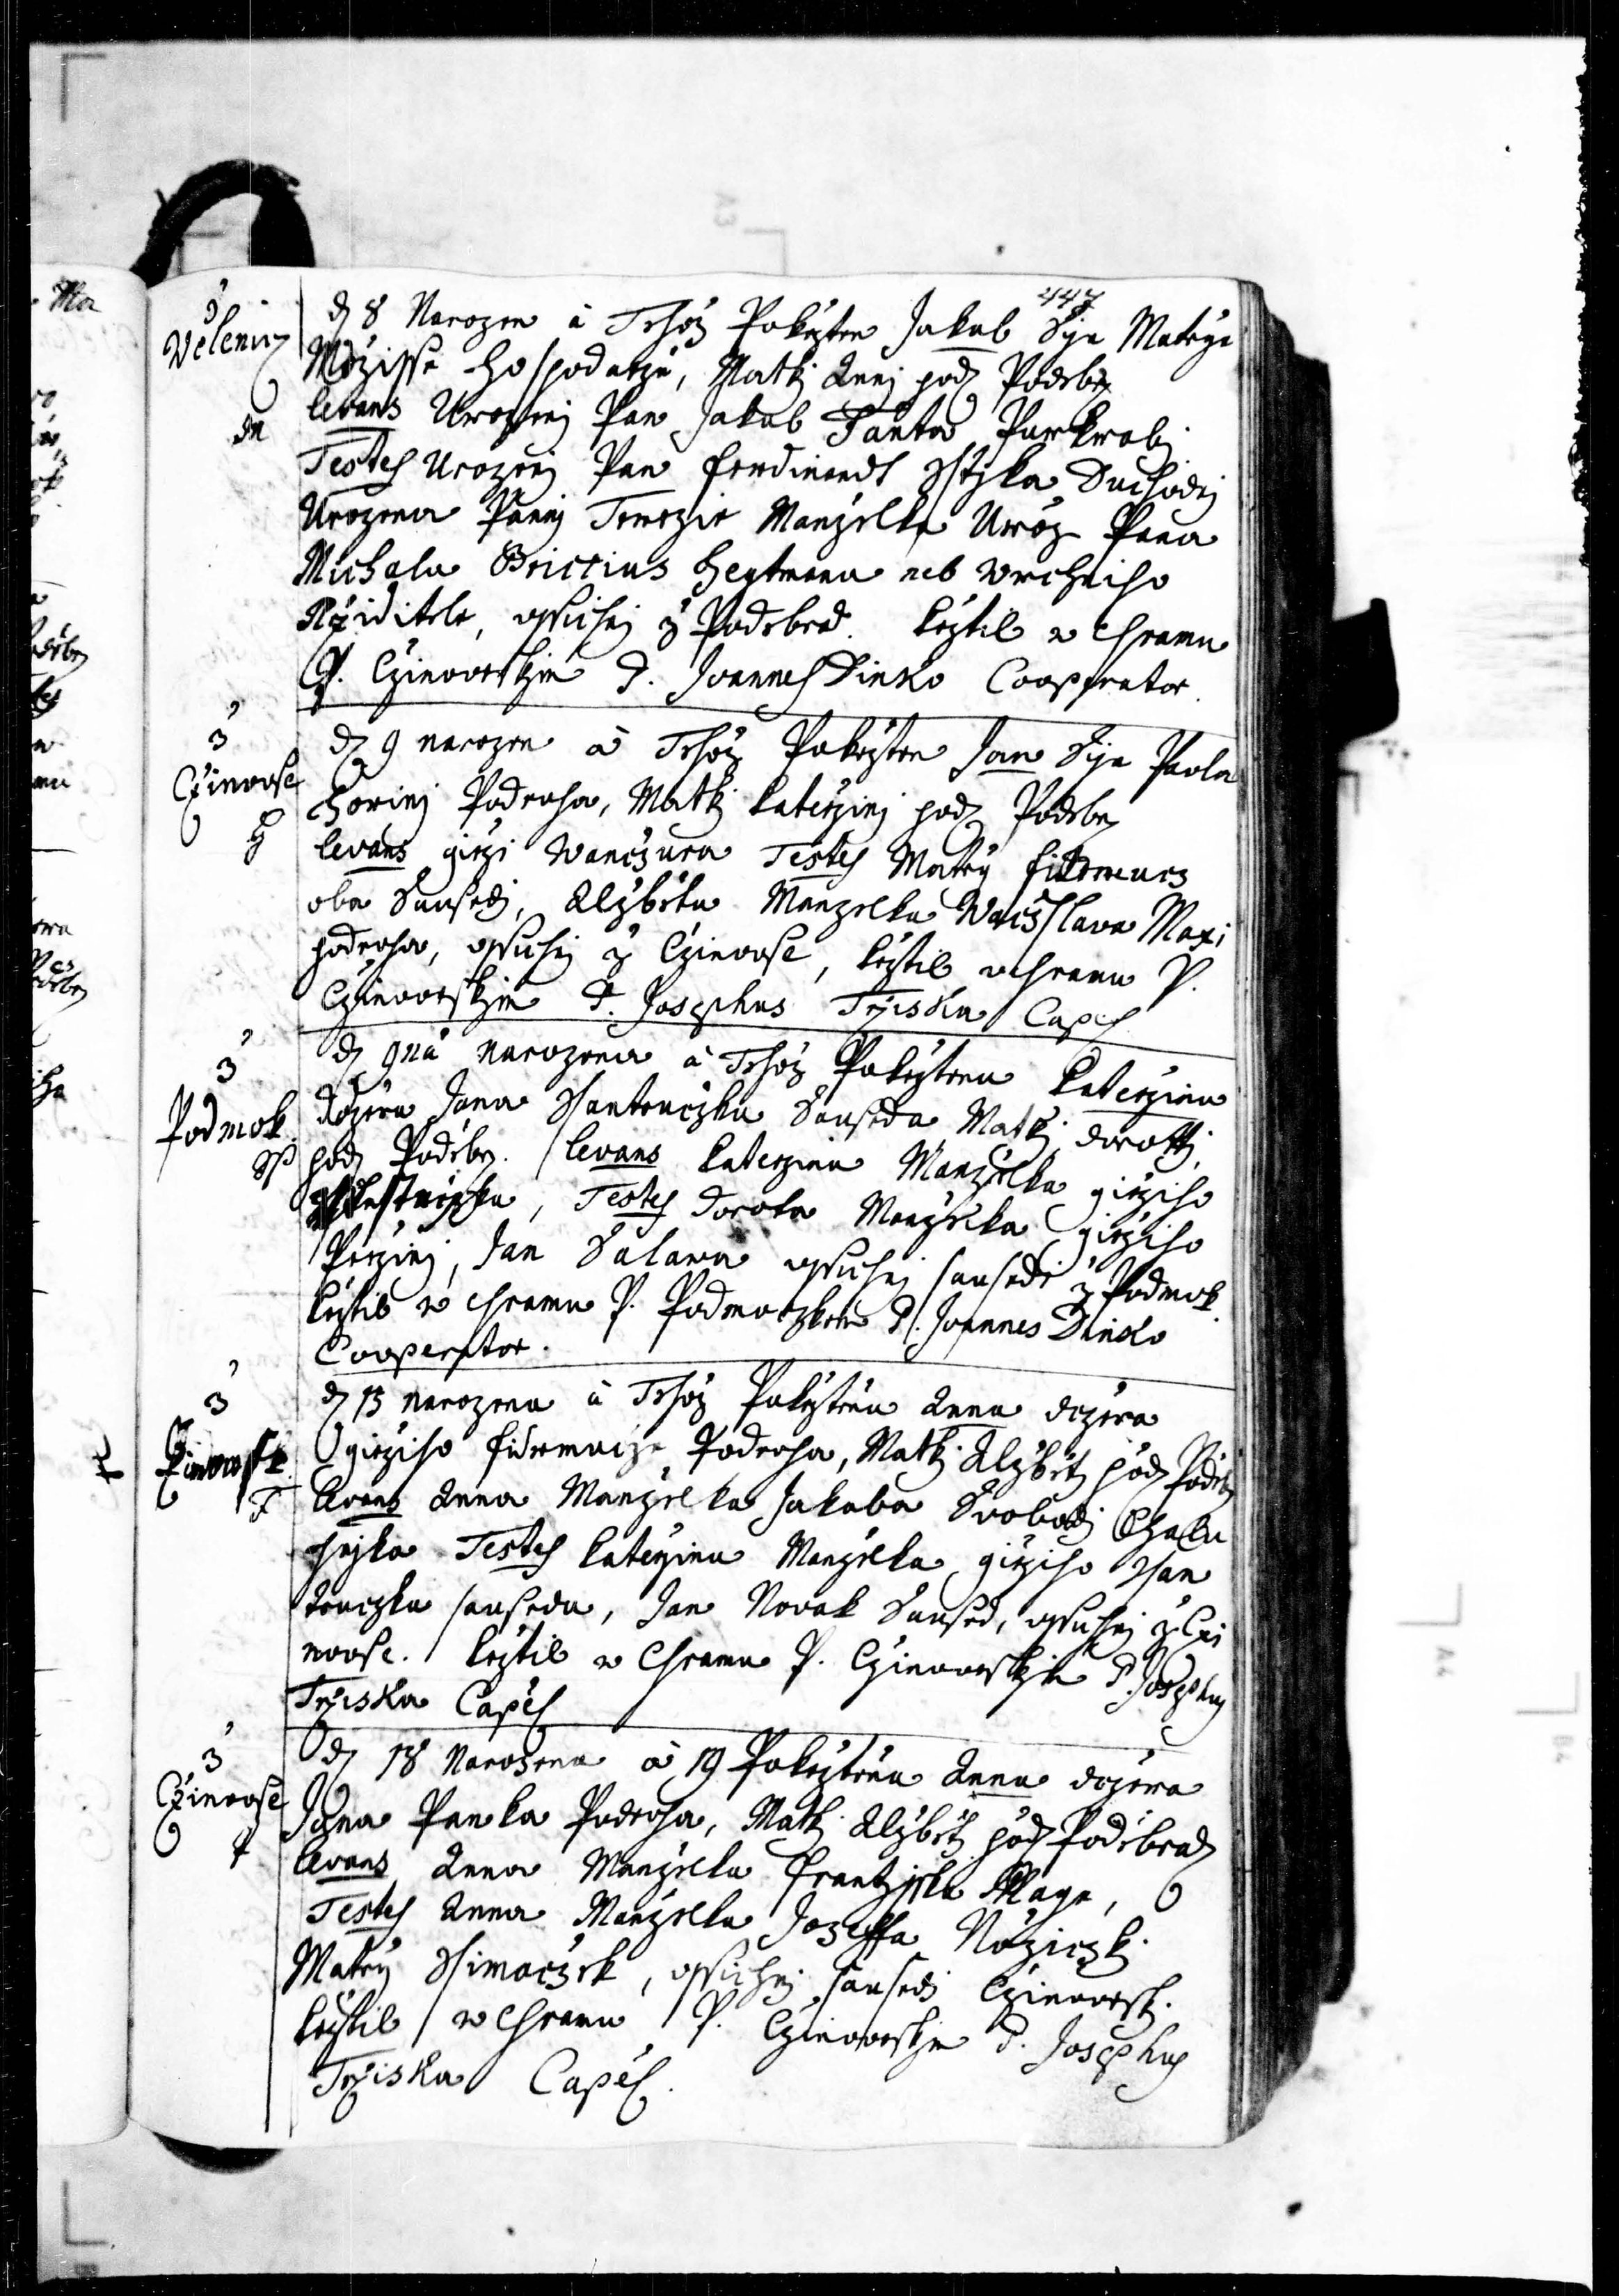 447
3
Velenicz
Dn
d 8 Narozen a Tehoz Pokrzten Jakub Syn Matege
Mogzisse Hospodarze, Matky Anny pod Podebr
Levans Urozeny Pan Jakub Fanta Purkraby
Testes Urozeny Pan Ferdinandt Duchodny
Urozena Panny Terezie Manzelka Uroz Pana
Michala Brictius Heytmana neb Wrchniho
Rziditele, wssichny z Podebrad. krztil w chramu
P. Czinoweskym P. Joannes Dinko Cooperator.
3
Czinowse
H
d 9 narozen a Tehoz Pokrzten Jan Syn Pavla
Horiny Podruha, Matky Katerziny pod Podebr
Levans girzi Wanczura Testes Matieg Fidrmucz
oba Sausedy, Alzbeta Manzelka Waczslava Maxi
podruha, wssichny z Czinowse, krztil w chramu P.
Czinoweskym P. Josephus Trziska Capel
3
Podmok
d 9na narozena a Tehoz Pokrztena Katerzina
dczera Jana Ssantruczka Sauseda Matky dorotty
pod Podebr. Levans Katerzina Manzelka girziho
Testes Dorota Manzelka girziho
Perziny, Jan Salava wssichny sausede z Podmok.
krztil w chramu P. Podmoczkem P. Joannes Dinko
Cooperator.
3
Czinowse
F
d 13 narozena a Tehoz Pokrztena Anna dczera
girziho Fidrmucze Podruha, Matky Alzbety pod Podebr
Levans Anna Manzelka Jakuba Svobody Chalu
pnika Testes Katerzina Manzelka girziho Ssan
truczka sauseda, Jan Novak Saused, wssichny z Czi
nowse. krztil w Chramu P. Czinoweskym P. Josephus
Trziska Capel
3
Czinowse
P
d 18 Narozena a 19 Pokrztena Anna dczera
Jana Panka Podruha, Matky Alzbety pod Podebrad
Levans Anna Manzelka Frantzisska Maye,
Testes Anna Manzelka Jozeffa Noziczky
Matieg Ssimaczek, wssichny sausedy Czinowesk.
krztil w Chramu P. Czinoweskym P. Josephus
Trziska Capel.